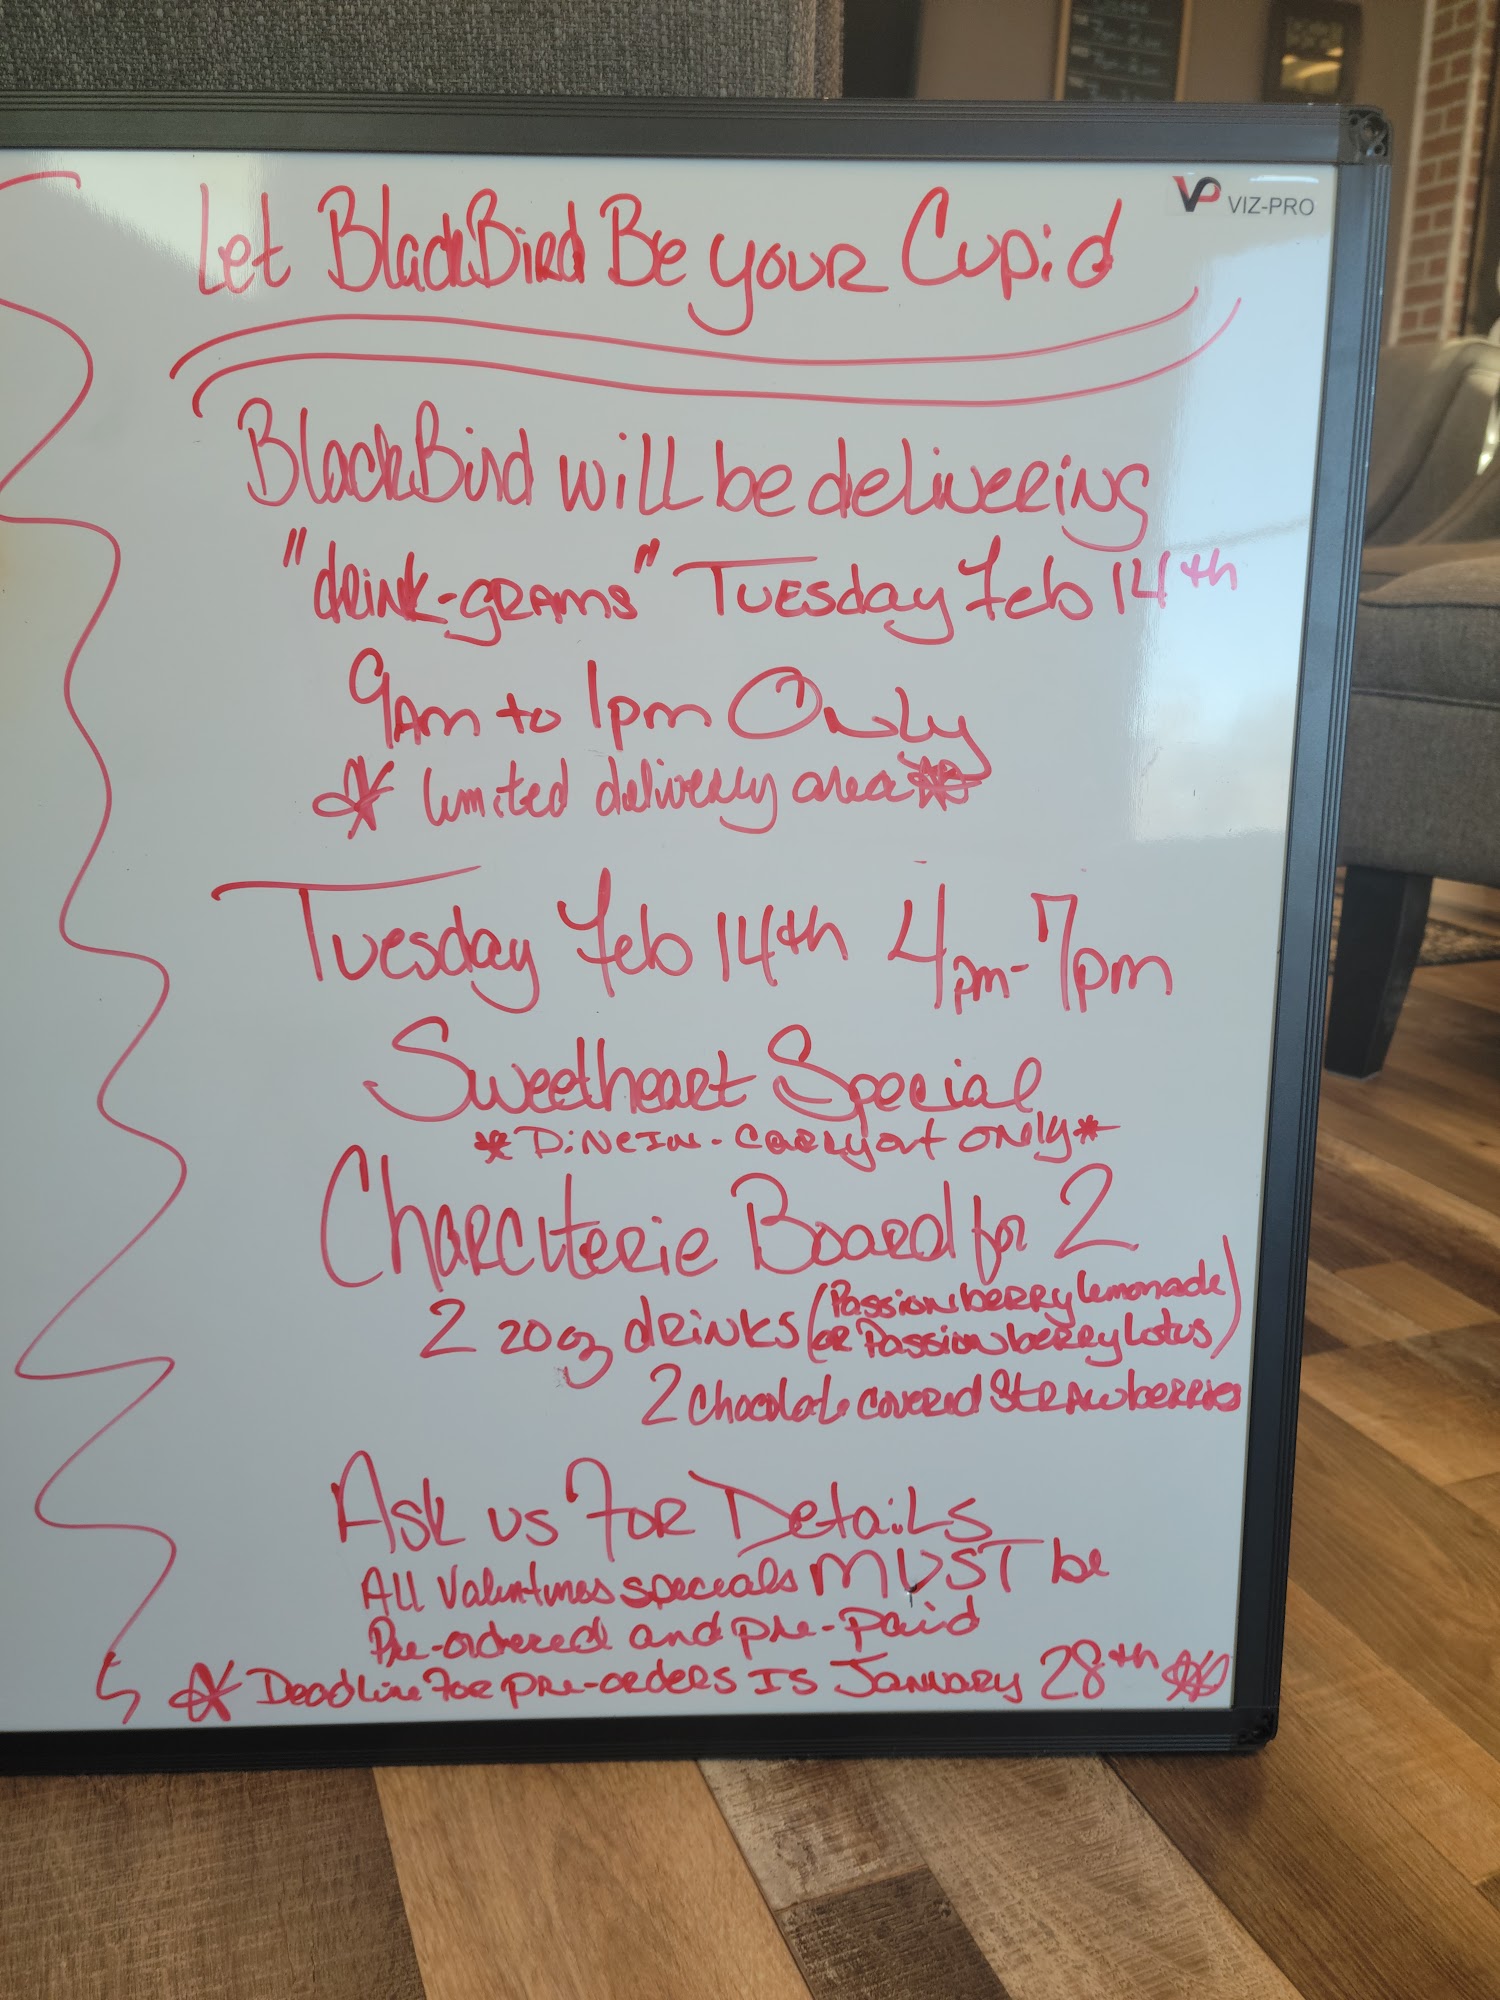 VP VIZ-PRO
Let BlackBird Be your Cupid
BlackBird will be delivering
"drink-grams" Tuesday Feb 14th
9am to 1pm Only
* limited delivery area *
Tuesday Feb 14th 4pm-7pm
Sweetheart Special
* DineIn - Carryout only *
Charciterie Board for 2
2 20oz drinks (Passionberry Lemonade
or Passionberry Lotus)
2 Chocolate covered Strawberries
Ask us For Details
All Valentines specials MUST be
Pre-ordered and pre-paid
* Deadline For pre-orders Is January 28th *